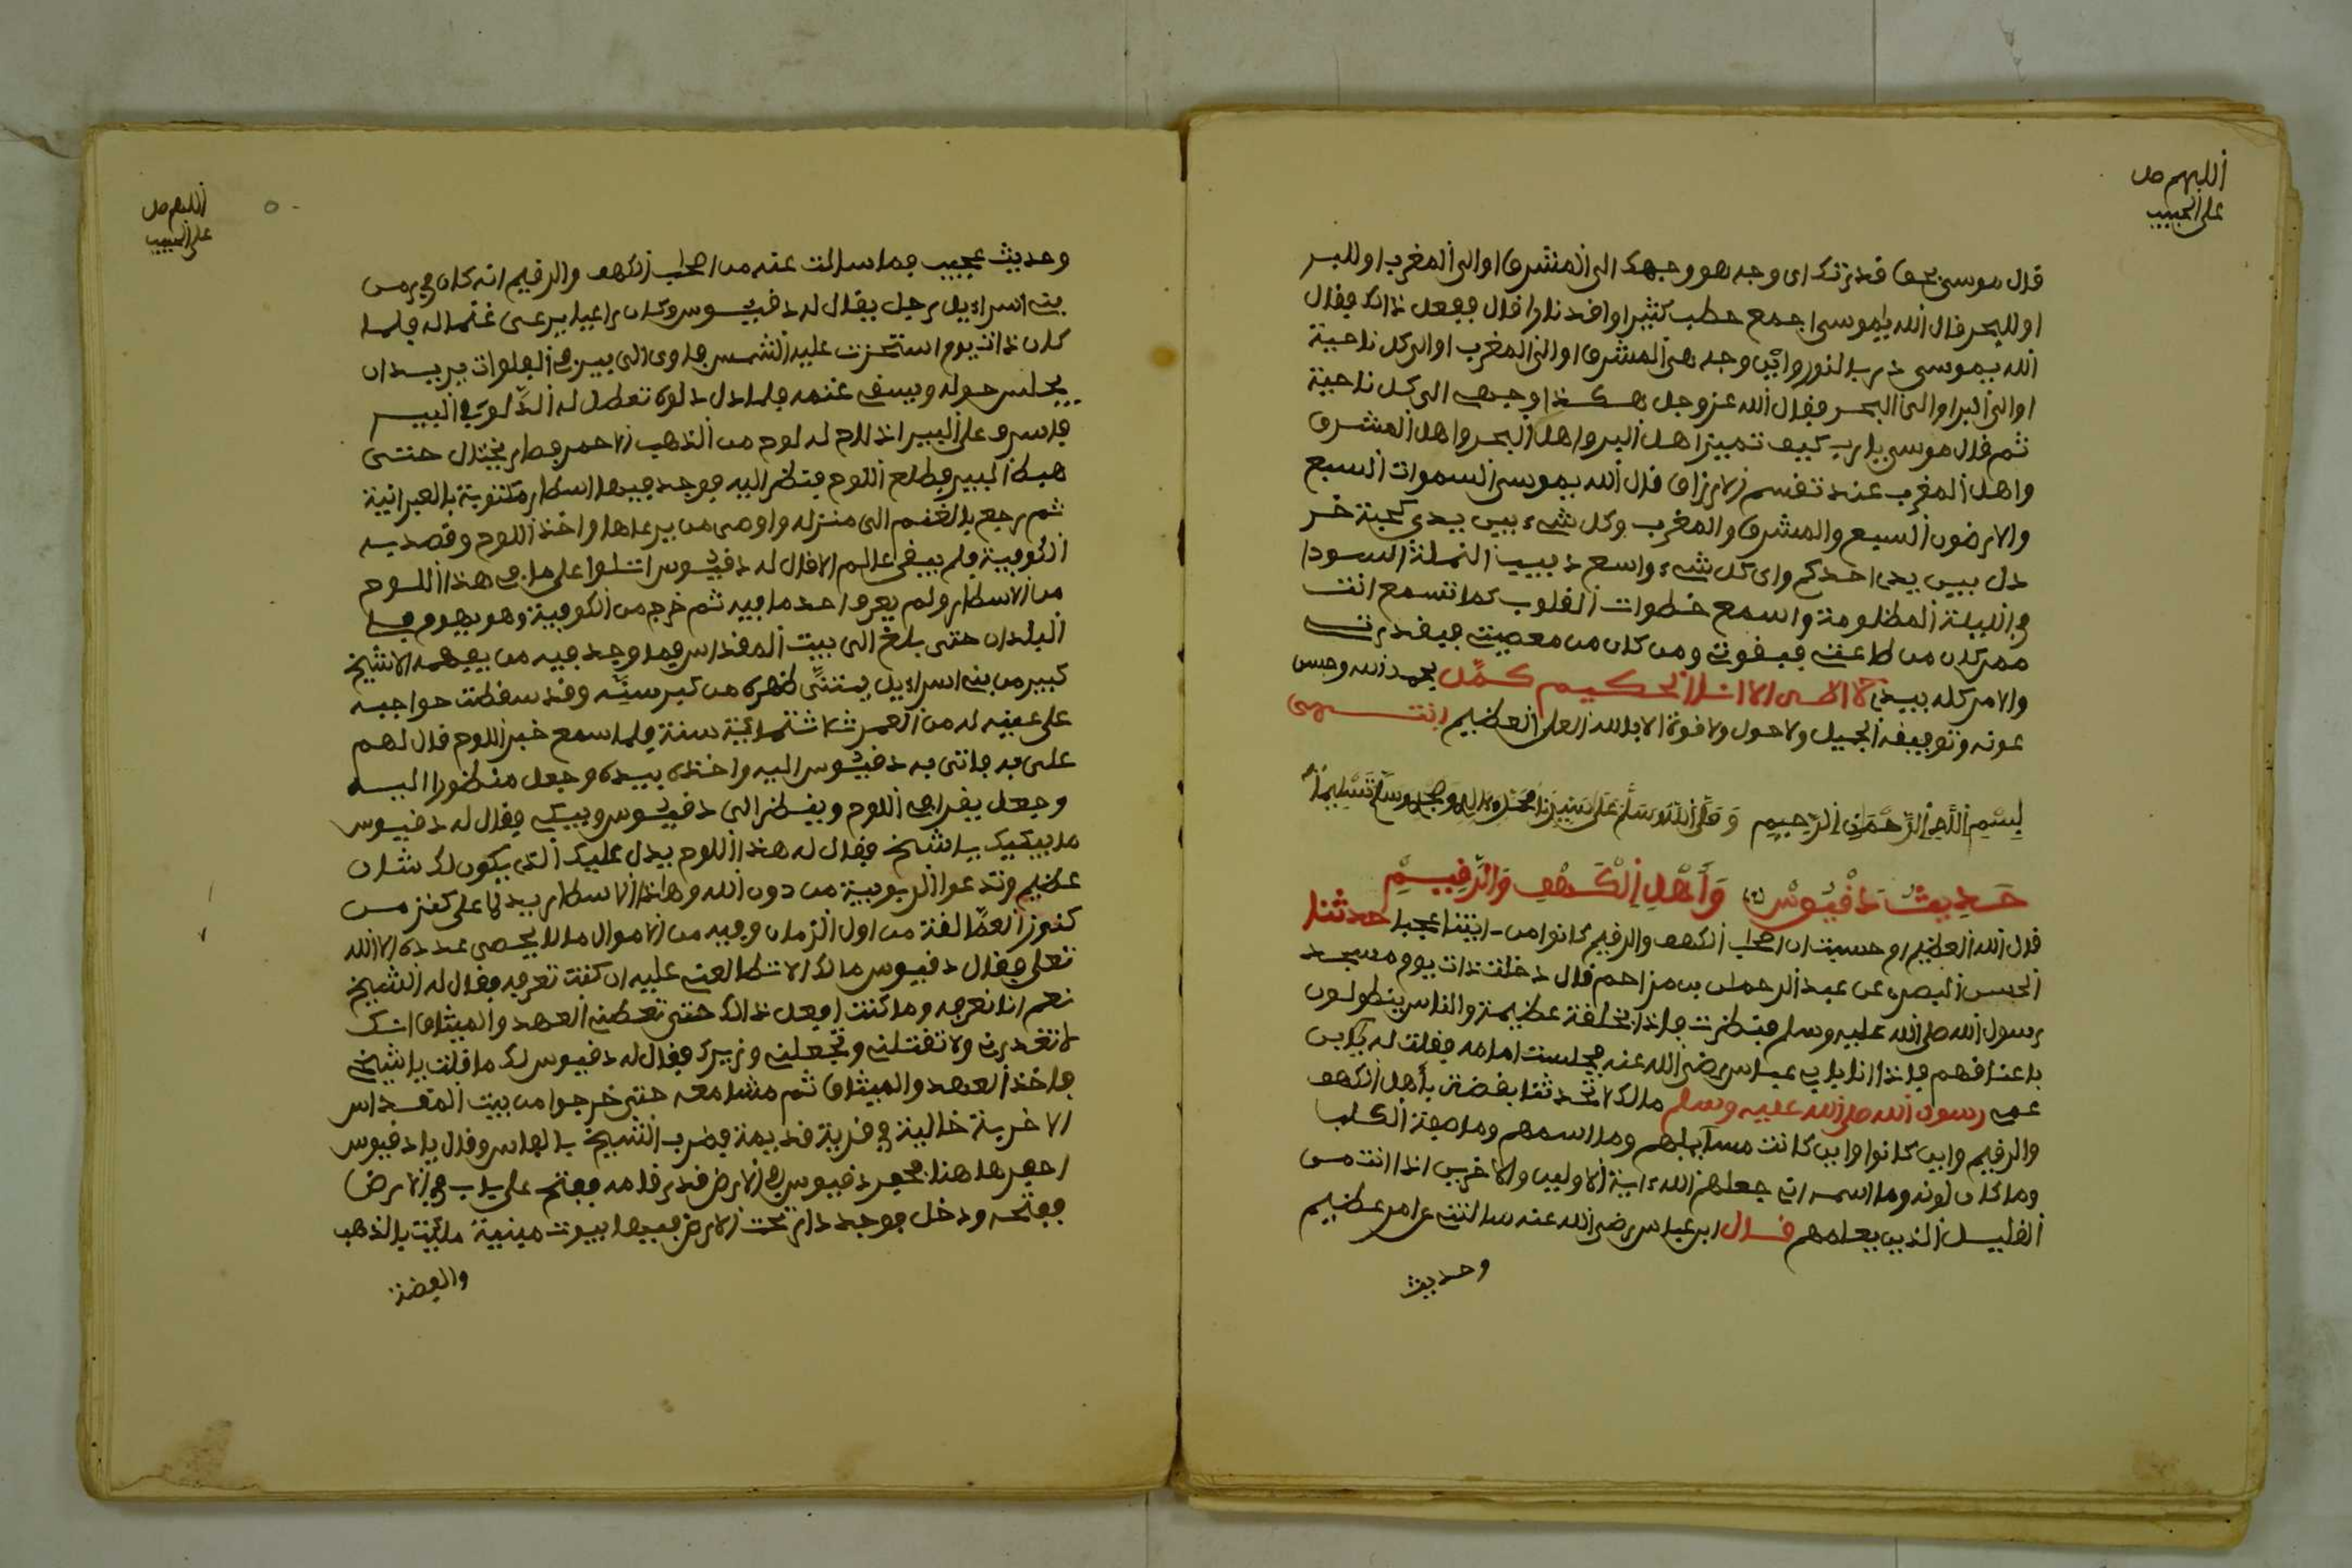 اللهم صل
على الحبيب
قال موسى بحق قدرتك اى وجه هو وجهك الى المشرق او الى المغرب او للبر
او للبحر قال الله ياموسى اجمع حطب كثيرا واقد نارا قال ففعل ذالك فقال
الله يموسى در بالنور واين وجه هى المشرق او الى المغرب او الى كل ناحية
او الى البر او الى البحر فقال الله عز وجل هكذا وجهى الى كل ناحية
ثم قال موسى يارب كيف تميز اهل البر واهل البحر واهل المشرق
واهل المغرب عند تقسم الارزاق قال الله يموسى السموات السبع
والارضون السبع والمشرق والمغرب وكل شىء بين يدى كحبة خر
دل بين يدى احدكم وارى كل شىء واسع دبيب النملة السودا
فى الليلة المظلومة واسمع خطوات القلوب كما تسمع انت
ممركان من طاعتى فبقوتى ومن كان من معصيتى فبقدرتى
والامر كله بيدى لا اله الا انا الحكيم كمل بحمد الله وحسن
عونه وتوفيقه الجميل ولا حول ولا قوة الا بالله العلى العظيم انتهى
بسم الله الرحمن الرحيم وصلى الله وسلم على سيدنا محمد وءاله وصحبه وسلم تسليما
حديث دقيوس واهل الكهف والرقيم
قال الله العظيم ام حسبت ان اصحاب الكهف والرقيم كانوا من ايتنا عجبا حدثنا
الحسن البصرى عن عبد الرحمان بن مزاحم قال دخلت ذات يوم مسجد
رسول الله صلى الله عليه وسلم فنظرت فاذا بحلفة عظيمة والناس يتطولون
باعناقهم فاذا انا بابى عباس رضى الله عنه فجلست امامه فقلت له يابن
عمى رسول الله صلى الله عليه وسلم مالك لا تحدثنا بقضة بأهل الكهف
والرقيم واين كانوا واين كانت مسآيلهم وما اسمهم وما صفة الكلب
وما كان لونه وما اسمه اتى جعلهم الله ءاية الاولين والاخرين اذا انت من
القليل الذين يعلمهم قال ابن عباس رضى الله عنه سالتنى عن امر عظيم
وحديث
اللهم صل
على الحبيب
وحديث عجيب فما سالت عنه من اصحاب الكهف والرقيم انه كان فى زمن
بنى اسراءيل رجل يقال له دقيوس وكان راعيا يرعى غنما له فلما
كان ذات يوم استحزت عليه الشمس فاوى الى بير فى الفلوات يريد ان
يجلس حوله ويسقى غنمه فلما دل دلوه تعطل له الدلو فى البير
فاسرف على البير اذ لاح له لوح من الذهب الاحمر فطار يختال حتى
هبط البير فطلع اللوح فنظر اليه فوجد فيها اسطار مكتوبة بالعبرانية
ثم رجع بالغنم الى منزله واوصى من يرعاها واخذ اللوح وقصد به
الكوفية فلم يبقى عالم الا قال له دقيوس اتلوا على ما فى هذا اللوح
من الاسطار ولم يعرف احد ما فيه ثم خرج من الكوفية وهو يهوم فى
البلدان حتى بلغ الى بيت المقداس فما وجد فيه من يفهمه الا شيخ
كبير من بنى اسراءيل يتثنى ظهره من كبر سنه وقد سقطت حواجبه
على عينيه له من العمر ثلاثماية سنة فلما سمع خبر اللوح قال لهم
على به فاتى به دقيوس اليه واخذه بيده وجعل منظورا اليه
وجعل يقرا فى اللوح وينظر الى دقيوس ويبكى فقال له دقيوس
ما يبكيك يا شيخ فقال له هذا اللوح يدل عليك الذى يكون لك شان
عظيم وتدعوا الربوبية من دون الله وهاذا الاسطار يدلنا على كنز من
كنوز العمالفة من اول الزمان وفيه من الاموال ما لا يحصى عدده الا الله
تعلى فقال دقيوس مالك لا تطالعنى عليه ان كنت تعرفه فقال له الشيخ
نعم انا نعرفه وما كنت افعل ذالك حتى تعطنى العهد والميثاق انك
لا تغدرنى ولا تقتلنى وتجعلنى وزيرك فقال له دقيوس لك ما قلت يا شيخ
فاخذ العهد والميثاق ثم مشا معه حتى خرجوا من بيت المقداس
الا خربة خالية فى قرية قديمة فضرب الشيخ بالفاس وقال يا دقيوس
احفر ها هنا فحفر دقيوس فى الارض قدر قامه ففتح على باب فى الارض
ففتحه ودخل فوجد دار تحت الارض فيها بيوت مبنية ملئت بالذهب
والفضة